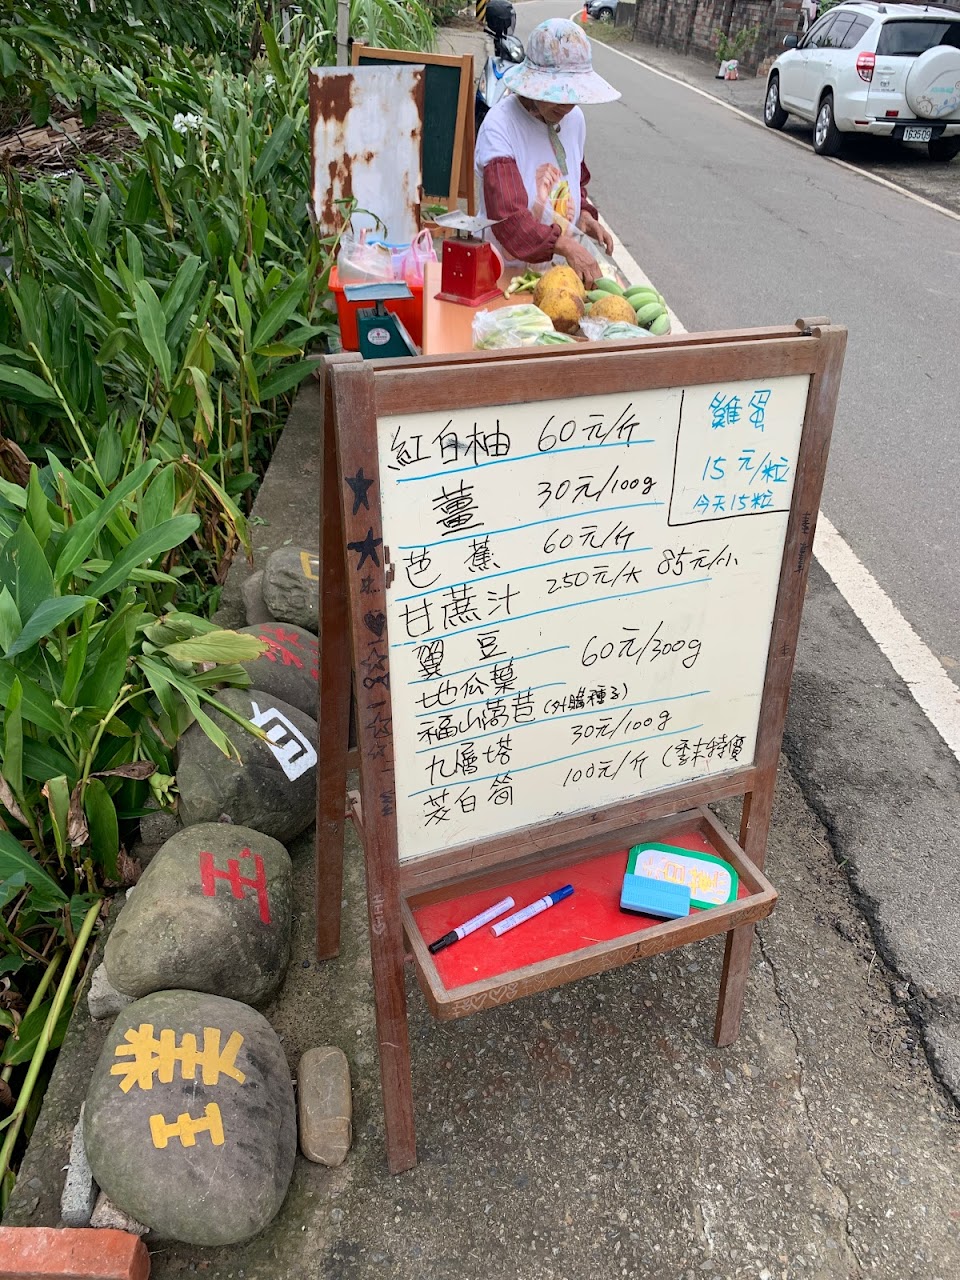 紅白柚 60元/斤
薑 30元/100g
芭蕉 60元/斤
甘蔗汁 250元/大 85元/小
翼豆
地瓜葉 60元/300g
福山萵苣(外購種子)
九層塔 30元/100g
茭白筍 100元/斤 (季末特價
雞蛋
15元/粒
今天15粒
1635 09